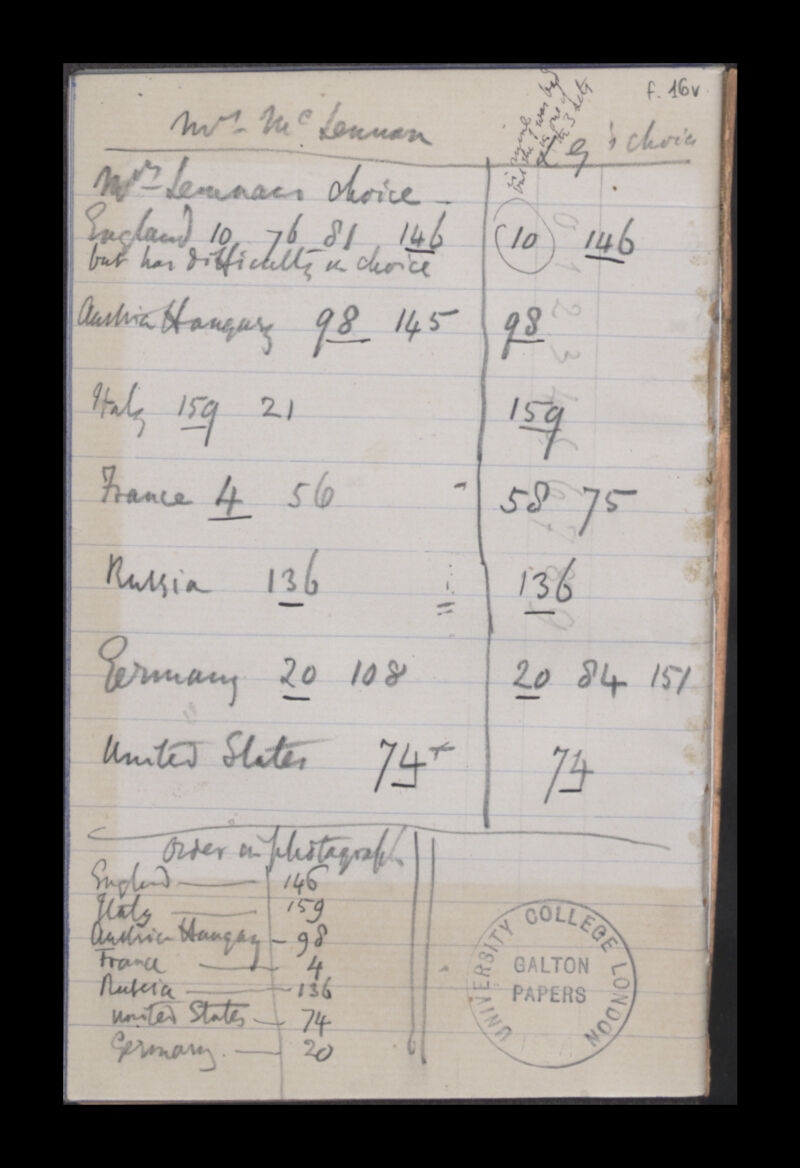 f. 16v.
Mrs Mc Lennan
's choice
Mrs Lennans choice -
England 10 76 81 146 10 146
but has difficulty in choice
Austria Hungary 98 145 98
Italy 159 21 159
France 4 56 - 58 75
Russia 136 = 136
Germany 20 108 20 84 151
United States 74+ 74
order in photograph
England — 146
Italy — 159
Austria Hungary - 98
France — 4
Russia — 136
United States — 74
Germany. — 20
UNIVERSITY COLLEGE LONDON
GALTON
PAPERS